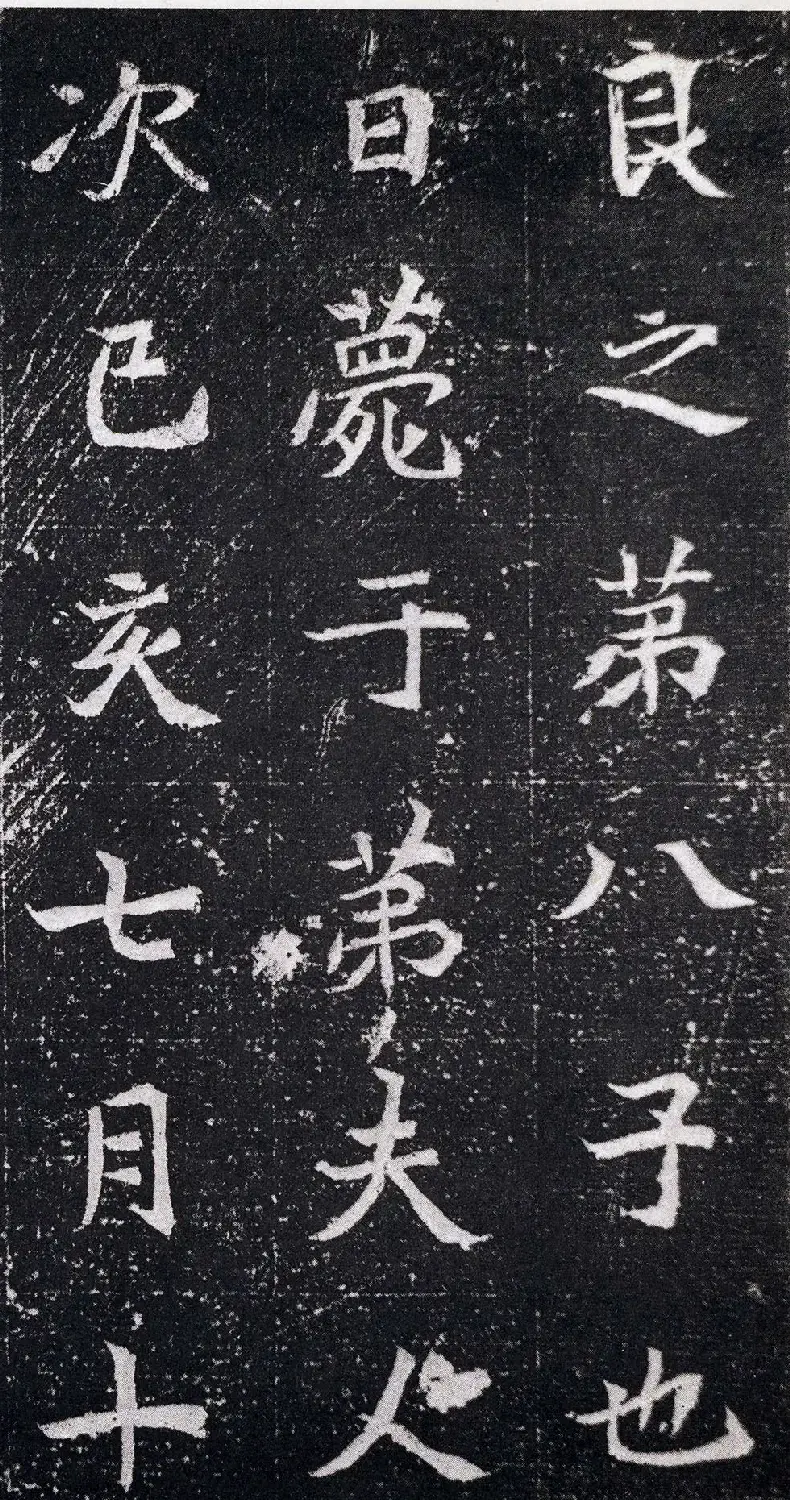 次己亥七月十
日薨于苐夫人
良之苐八子也